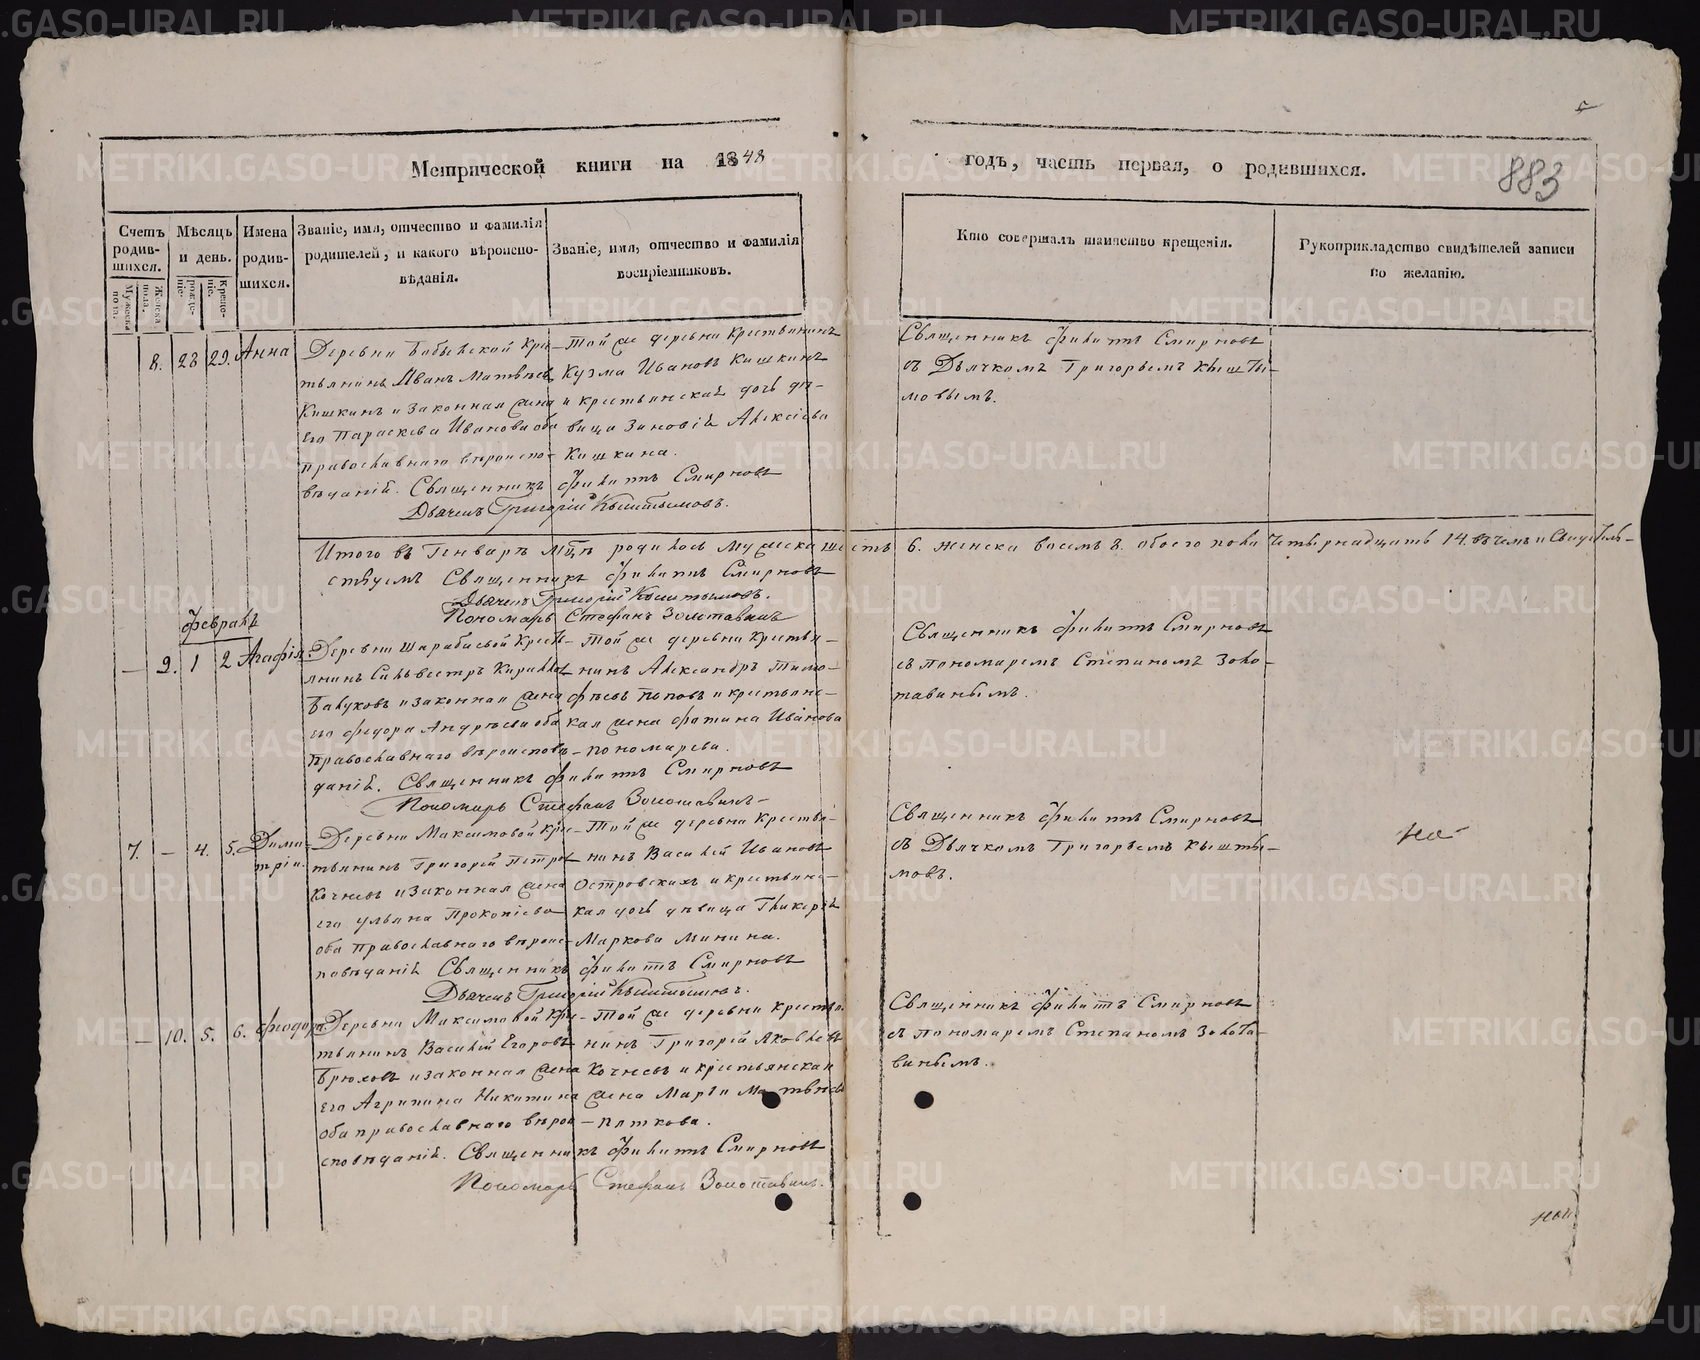 Метрической книги на 1848 годъ, часть первая, о родившихся.
883
Счетъ родив-шихся.
Мужеска пола.
Женска пола.
Мѣсяцъ и день.
рожде-ніе.
креще-ніе.
Имена родив-шихся.
Званіе, имя, отчество и фамилія родителей, и какого вѣроиспо-вѣданія.
Званіе, имя, отчество и фамилія воспріемниковъ.
Кто совершалъ таинство крещенія.
Рукоприкладство свидѣтелей записи по желанію.
8. 28 29. Анна
Деревни Бобынской кре-
стьянинъ Иванъ Матвѣевъ
Кишкинъ и законная жена
его Параскева Иванова оба
православнаго вѣроиспо-
вѣданій. Священникъ Филиппъ Смирновъ
Дьячекъ Григорій Кыштымовъ.
Той же деревни крестьянинъ
Кузма Ивановъ Кишкинъ
и крестьянская дочь дѣ-
вица Зиновія Алексіева
Кишкина.
Священникъ Филиппъ Смирновъ
съ Дьячкомъ Григорьемъ Кышты-
мовымъ.
Итого въ Генварѣ м-цѣ родилось мужеска шесть 6. женска восемь 8. обоего пола четырнадцать 14. въ чемъ и свидѣтель-
ствуемъ Священникъ Филиппъ Смирновъ
Дьячекъ Григорій Кыштымовъ.
Пономарь Стефанъ Золотавинъ
Февраль
— 9. 1 2 Агафія.
Деревни Шарабаевой крест-
янинъ Сильвестръ Кирилловъ
Балуковъ и законная жена
его Федора Андрѣева оба
православнаго вѣроисповѣ-
даній. Священникъ Филиппъ Смирновъ
Пономарь Стефанъ Золотавинъ
Той же деревни крестья-
нинъ Александръ Тимо-
фѣевъ Поповъ и крестьянс-
кая жена Фотина Иванова
Пономарева.
Священникъ Филиппъ Смирновъ
съ пономаремъ Степаномъ Золо-
тавинымъ.
7. — 4. 5. Дими-
трій.
Деревни Максимовой кре-
стьянинъ Григорій Петровъ
Кочневъ и законная жена
его Ульяна Прокопіева
оба православнаго вѣроис-
повѣданій Священникъ Филиппъ Смирновъ
Дьячекъ Григорій Кыштымовъ.
Той же деревни крестья-
нинъ Василій Ивановъ
Островскихъ и крестьянс-
кая дочь дѣвица Гликерія
Маркова Минина.
Священникъ Филиппъ Смирновъ
съ Дьячкомъ Григорьемъ Кышты-
мовъ.
— 10. 5. 6. Феодора
Деревни Максимовой кре-
стьянинъ Василій Егоровъ
Брюховъ и законная жена
его Агрипина Никитина
оба православнаго вѣрои-
сповѣданій. Священникъ Филиппъ Смирновъ
Пономарь Стефанъ Золотавинъ.
Той же деревни крестья-
нинъ Григорій Яковлевъ
Кочневъ и крестьянская
жена Марѳа Матвѣева
Пяткова.
Священникъ Филиппъ Смирновъ
съ пономаремъ Степаномъ Золота-
винымъ.
METRIKI.GASO-URAL.RU